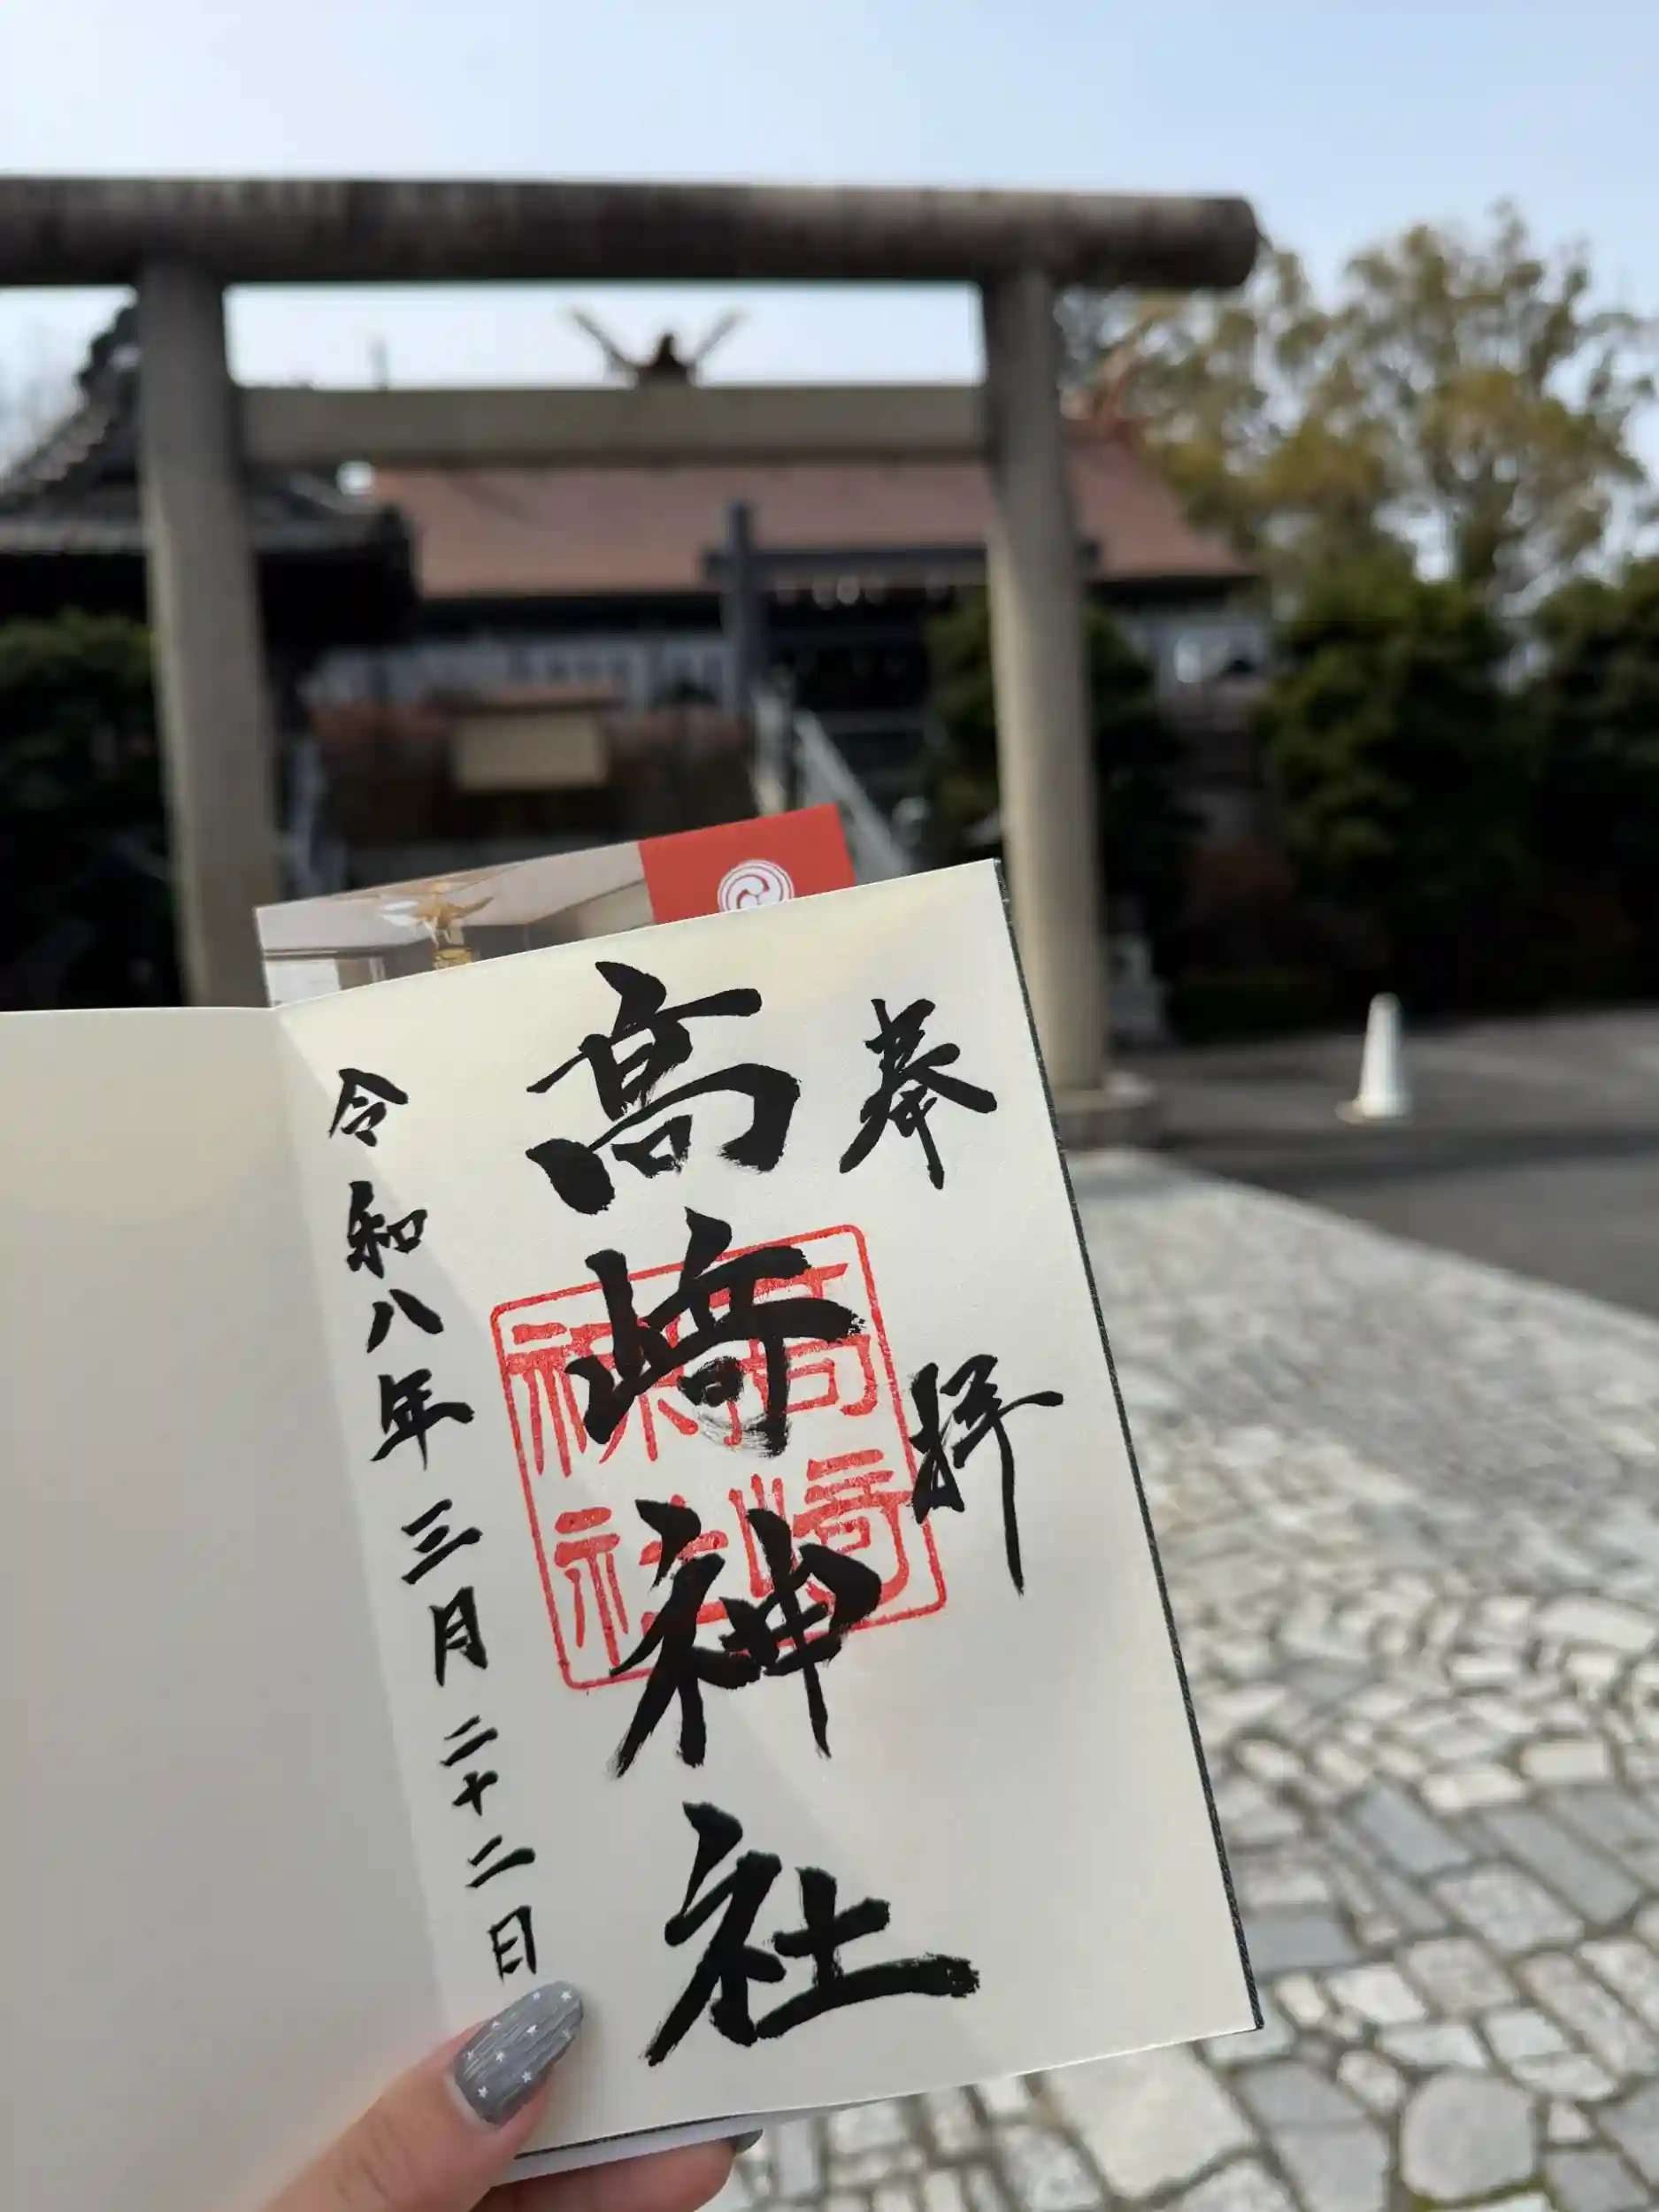 奉拝
高崎神社
高崎
神社
令和八年三月二十二日